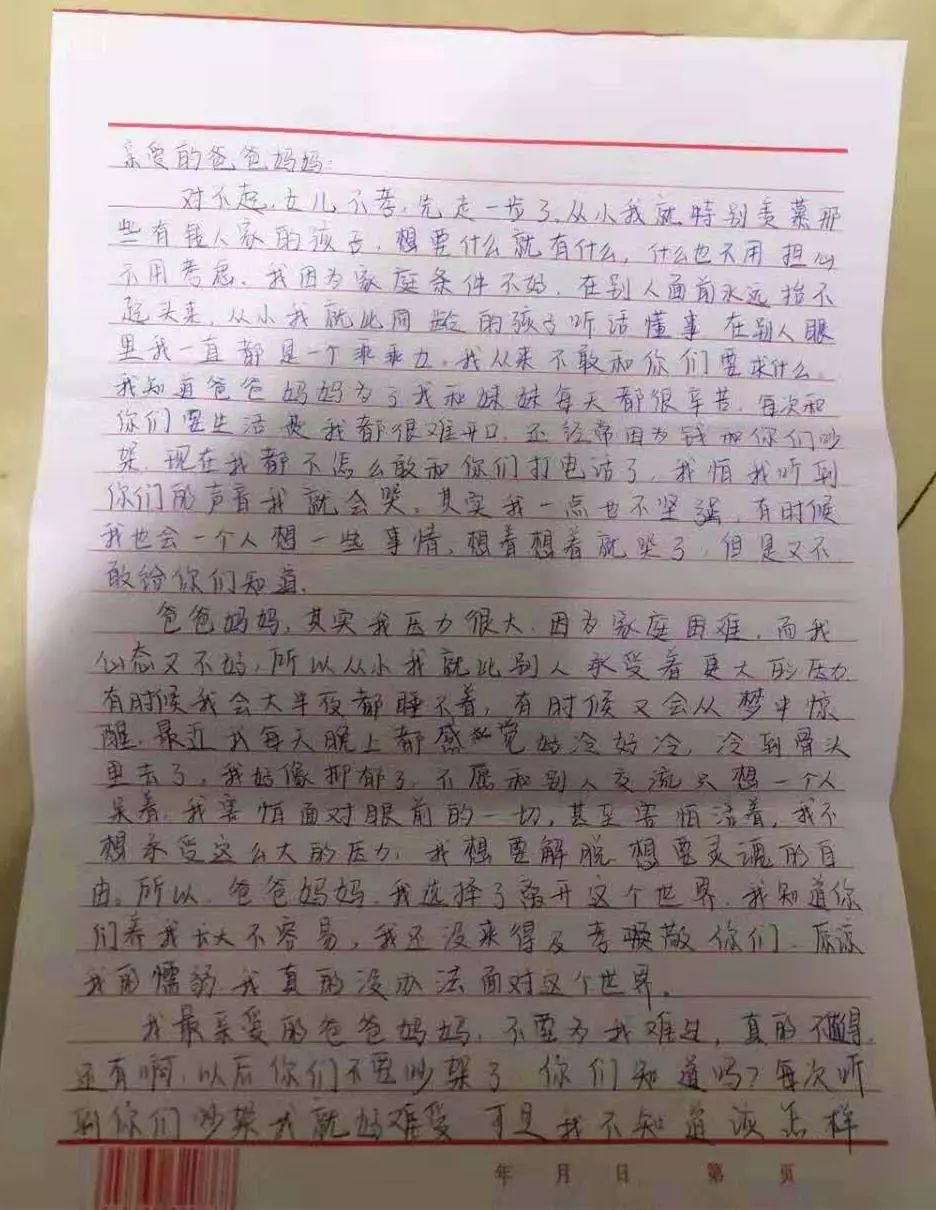 亲爱的爸爸妈妈:
对不起,女儿不孝,先走一步了,从小我就特别羡慕那
些有钱人家的孩子,想要什么就有什么,什么也不用担心
不用考虑。我因为家庭条件不好,在别人面前永远抬不
起头来,从小我就比同龄的孩子听话懂事 在别人眼
里我一直都是一个乖乖女,我从来不敢和你们要求什么。
我知道爸爸妈妈为了我和妹妹每天都很辛苦,每次和
你们要生活费我都很难开口,还经常因为钱和你们吵
架,现在我都不怎么敢和你们打电话了,我怕我听到
你们的声音我就会哭。其实我一点也不坚强,有时候
我也会一个人想一些事情,想着想着就哭了,但是又不
敢给你们知道.
爸爸妈妈,其实我压力很大,因为家庭困难,而我
心态又不好,所以从小我就比别人承受着更大的压力
有时候我会大半夜都睡不着,有时候又会从梦中惊
醒,最近我每天晚上都感觉好冷好冷,冷到骨头
里去了,我好像抑郁了,不愿和别人交流只想一个人
呆着,我害怕面对眼前的一切,甚至害怕活着,我不
想承受这么大的压力,我想要解脱 想要灵魂的自
由。所以,爸爸妈妈,我选择了离开这个世界,我知道你
们养我长大不容易,我还没来得及孝敬你们,原谅
我的懦弱,我真的没办法面对这个世界。
我最亲爱的爸爸妈妈,不要为我难过,真的不值得,
还有啊,以后你们不要吵架了 你们知道吗?每次听
到你们吵架我就好难受 可是我不知道该怎样
年 月 日 第 页